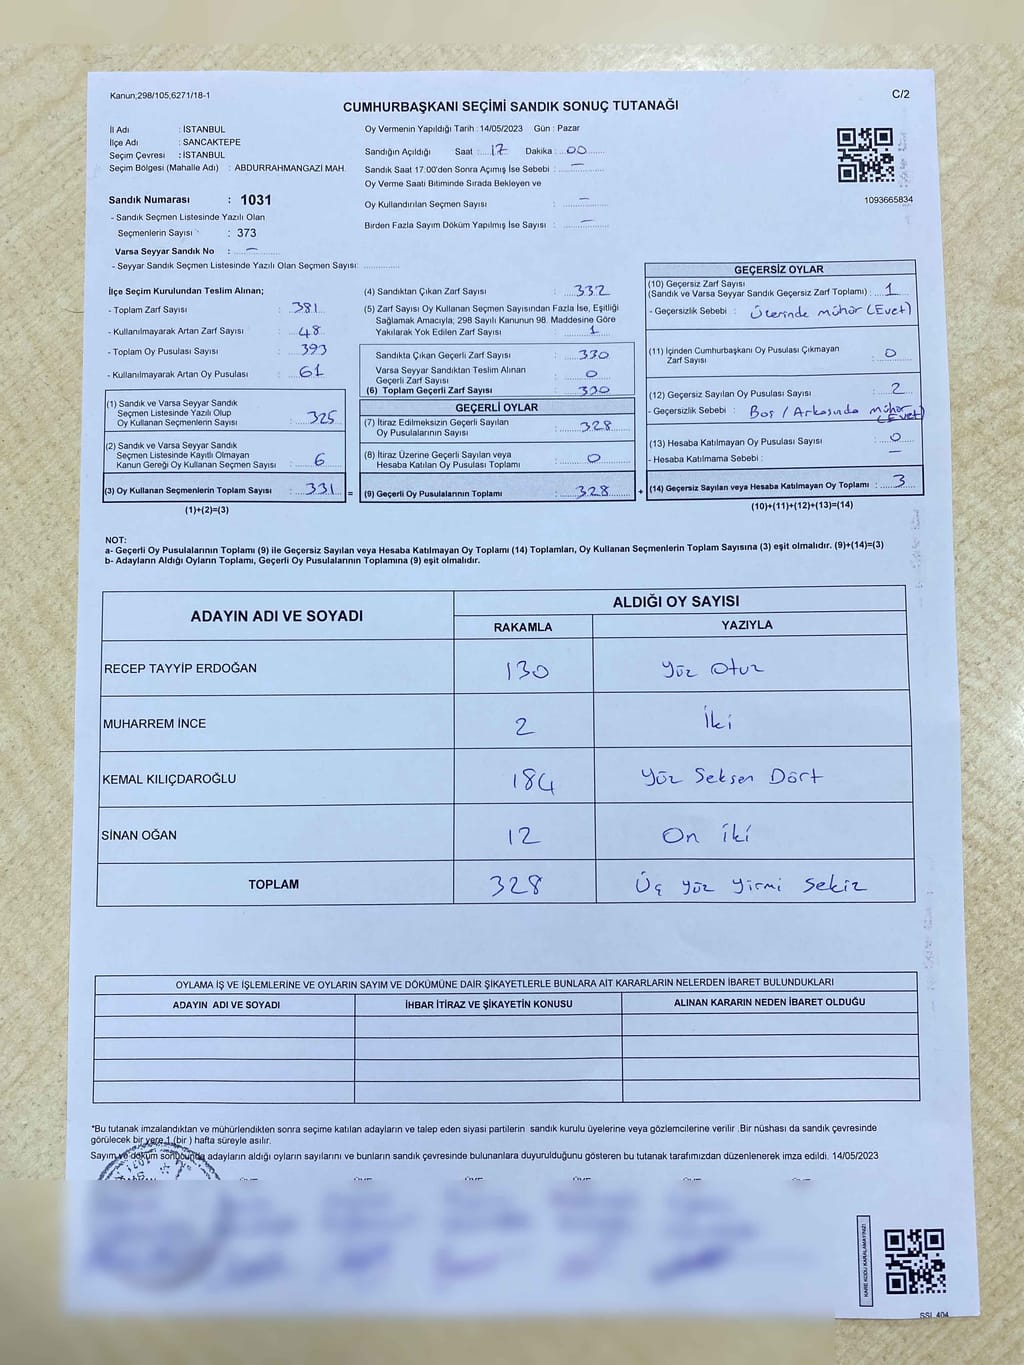 Kanun,298/105,6271/18-1
C/2
CUMHURBAŞKANI SEÇİMİ SANDIK SONUÇ TUTANAĞI
İl Adı : İSTANBUL
İlçe Adı : SANCAKTEPE
Seçim Çevresi : İSTANBUL
Seçim Bölgesi (Mahalle Adı) : ABDURRAHMANGAZİ MAH.
Sandık Numarası : 1031
- Sandık Seçmen Listesinde Yazılı Olan
Seçmenlerin Sayısı : 373
Varsa Seyyar Sandık No : —
- Seyyar Sandık Seçmen Listesinde Yazılı Olan Seçmen Sayısı:
Oy Vermenin Yapıldığı Tarih : 14/05/2023 Gün : Pazar
Sandığın Açıldığı Saat : 17 Dakika : 00
Sandık Saat 17:00'den Sonra Açımış İse Sebebi : —
Oy Verme Saati Bitiminde Sırada Bekleyen ve
Oy Kullandırılan Seçmen Sayısı : —
Birden Fazla Sayım Döküm Yapılmış İse Sayısı : —
1093665834
İlçe Seçim Kurulundan Teslim Alınan;
- Toplam Zarf Sayısı : 381
- Kullanılmayarak Artan Zarf Sayısı : 48
- Toplam Oy Pusulası Sayısı : 393
- Kullanılmayarak Artan Oy Pusulası : 61
(1) Sandık ve Varsa Seyyar Sandık
Seçmen Listesinde Yazılı Olup
Oy Kullanan Seçmenlerin Sayısı : 325
(2) Sandık ve Varsa Seyyar Sandık
Seçmen Listesinde Kayıtlı Olmayan
Kanun Gereği Oy Kullanan Seçmen Sayısı : 6
(3) Oy Kullanan Seçmenlerin Toplam Sayısı : 331 =
(1)+(2)=(3)
(4) Sandıktan Çıkan Zarf Sayısı : 332
(5) Zarf Sayısı Oy Kullanan Seçmen Sayısından Fazla İse, Eşitliği
Sağlamak Amacıyla, 298 Sayılı Kanunun 98. Maddesine Göre
Yakılarak Yok Edilen Zarf Sayısı : 1
Sandıkta Çıkan Geçerli Zarf Sayısı : 330
Varsa Seyyar Sandıktan Teslim Alınan
Geçerli Zarf Sayısı : 0
(6) Toplam Geçerli Zarf Sayısı : 330
GEÇERLİ OYLAR
(7) İtiraz Edilmeksizin Geçerli Sayılan
Oy Pusulalarının Sayısı : 328
(8) İtiraz Üzerine Geçerli Sayılan veya
Hesaba Katılan Oy Pusulası Toplamı : 0
(9) Geçerli Oy Pusulalarının Toplamı : 328 +
GEÇERSİZ OYLAR
(10) Geçersiz Zarf Sayısı
(Sandık ve Varsa Seyyar Sandık Geçersiz Zarf Toplamı) : 1
- Geçersizlik Sebebi : Üzerinde mühür (Evet)
(11) İçinden Cumhurbaşkanı Oy Pusulası Çıkmayan
Zarf Sayısı : 0
(12) Geçersiz Sayılan Oy Pusulası Sayısı : 2
- Geçersizlik Sebebi : Boş / Arkasında mühür
(Evet)
(13) Hesaba Katılmayan Oy Pusulası Sayısı : 0
- Hesaba Katılmama Sebebi : —
(14) Geçersiz Sayılan veya Hesaba Katılmayan Oy Toplamı : 3
(10)+(11)+(12)+(13)=(14)
NOT:
a- Geçerli Oy Pusulalarının Toplamı (9) ile Geçersiz Sayılan veya Hesaba Katılmayan Oy Toplamı (14) Toplamları, Oy Kullanan Seçmenlerin Toplam Sayısına (3) eşit olmalıdır. (9)+(14)=(3)
b- Adayların Aldığı Oyların Toplamı, Geçerli Oy Pusulalarının Toplamına (9) eşit olmalıdır.
ADAYIN ADI VE SOYADI
ALDIĞI OY SAYISI
RAKAMLA YAZIYLA
RECEP TAYYİP ERDOĞAN 130 Yüz Otuz
MUHARREM İNCE 2 İki
KEMAL KILIÇDAROĞLU 184 Yüz Seksen Dört
SİNAN OĞAN 12 On iki
TOPLAM 328 Üç yüz yirmi sekiz
OYLAMA İŞ VE İŞLEMLERİNE VE OYLARIN SAYIM VE DÖKÜMÜNE DAİR ŞİKAYETLERLE BUNLARA AİT KARARLARIN NELERDEN İBARET BULUNDUKLARI
ADAYIN ADI VE SOYADI İHBAR İTİRAZ VE ŞİKAYETİN KONUSU ALINAN KARARIN NEDEN İBARET OLDUĞU
*Bu tutanak imzalandıktan ve mühürlendikten sonra seçime katılan adayların ve talep eden siyasi partilerin sandık kurulu üyelerine veya gözlemcilerine verilir .Bir nüshası da sandık çevresinde
görülecek bir yere 1 (bir ) hafta süreyle asılır.
Sayım ve döküm sonucunda adayların aldığı oyların sayılarını ve bunların sandık çevresinde bulunanlara duyurulduğunu gösteren bu tutanak tarafımızdan düzenlenerek imza edildi. 14/05/2023
KARE KODU KARALAMAYINIZ!